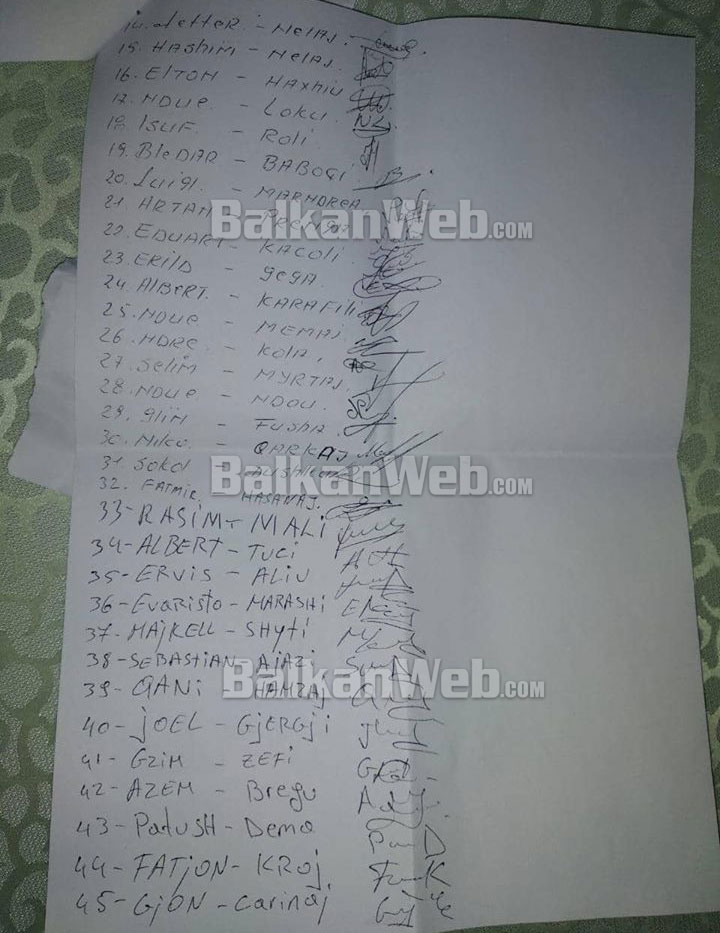 14. Jetter. - MeIaj.
15. HAshim - MeIaj
16. ELTON - HAXHIU
17. NDUE. - LOKU.
18. ISUF. - Roli
19. BleDAR - BABOÇI
20. Luigi. - MARNDREA
21. ARTAN -
22. EDUART - KACOLi
23. ERILD - gega
24. ALBERT. - KARAFILI
25. NDUE - MEMAJ
26. NDRE - KOLA
27. Selim - MYRTAJ
28. NDUE - NDOU.
29. glin - FUSHA
30. Niko. - QARKAJ
31. Sokol -
32. FATMIR HASANAJ.
33-RASIM-MALI
34-ALBERT-TUCI
35-ERVIS - ALIU
36-Evaristo-MARASHi
37-MAJKELL-SHYTi
38-SEBASTIAN-AJAZi
39-GANi - HAMZAJ
40-jOEL-GjERGji
41-GZIM - ZEFi
42-AZEM - Bregu
43-PadUSH-Demo
44-FATjON-KROj
45-GjON-carinaj
BalkanWeb.COM
BalkanWeb.COM
BalkanWeb.COM